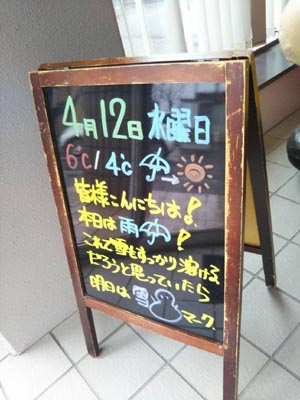 4月12日 水曜日
6℃/4℃ ☂→☀
皆様こんにちはよ!
本日は雨☂!
これで雪もすっかり溶ける
だろうと思っていたら
明日は雪⛄マーク.